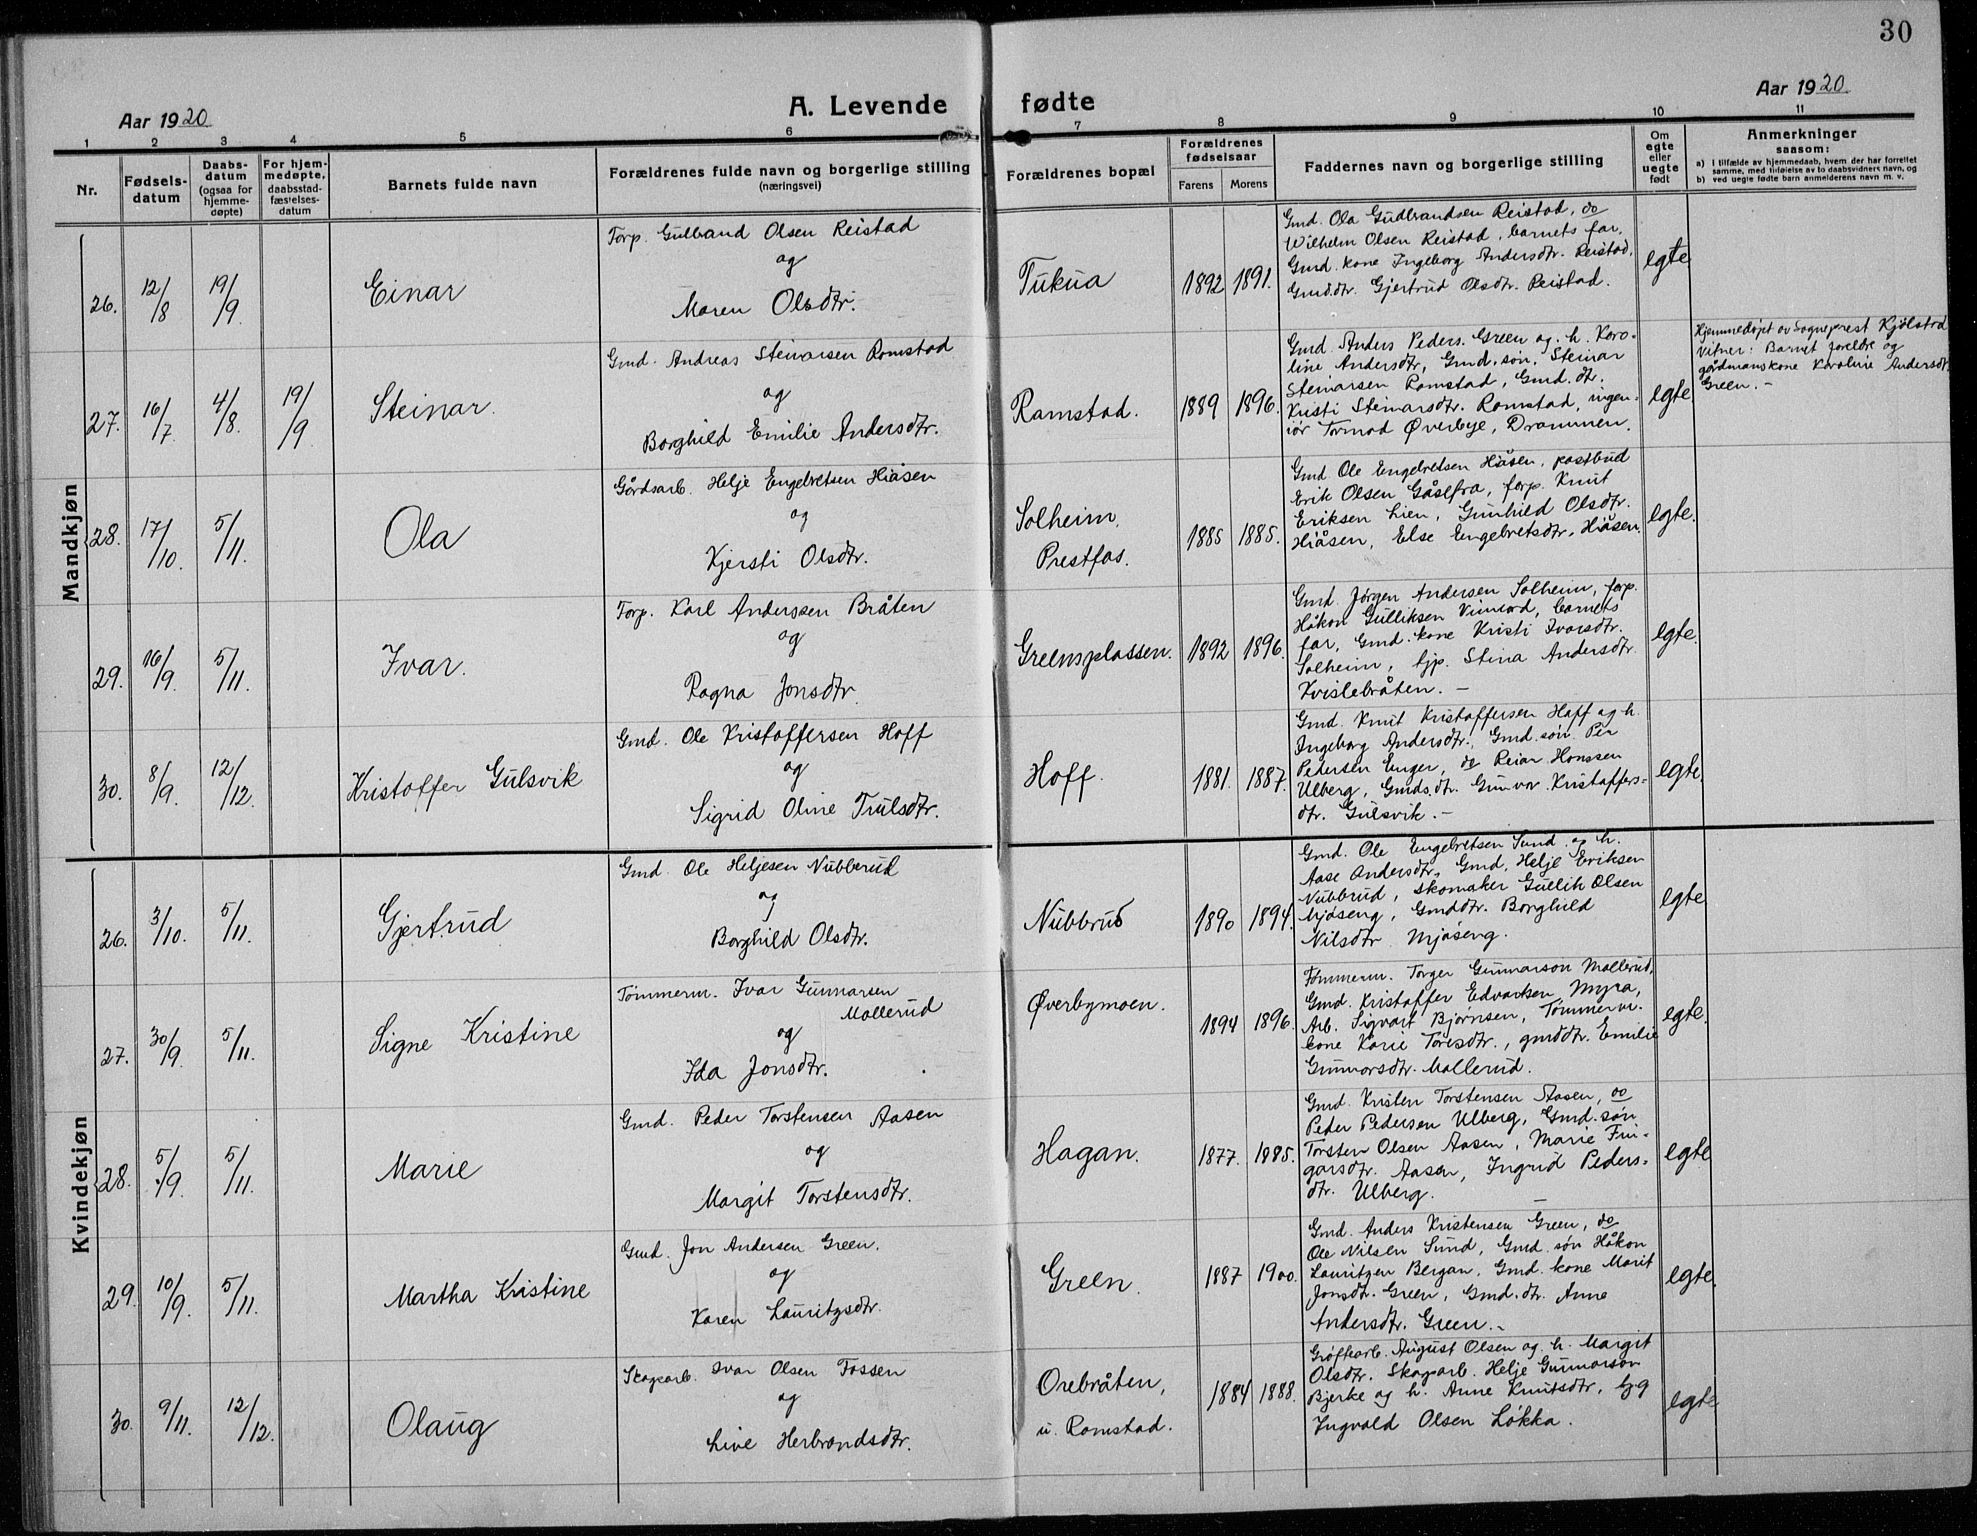 30
A. Levende fødte
Aar 1920
Aar 1920
1 2 3 4 5 6 7 8 9 10 11
Nr.
Fødselsdatum
Daabsdatum (ogsaa for hjemmedøpte)
For hjemmedøpte, daabsstadfæstelsesdatum
Barnets fulde navn
Forældrenes fulde navn og borgerlige stilling
(næringsvei)
Forældrenes bopæl
Forældrenes fødselsaar
Farens Morens
Faddernes navn og borgerlige stilling
Om egte eller uegte født
Anmerkninger
saasom:
a) i tilfælde av hjemmedaab, hvem der har forrettet samme, med tilføielse av to daabsvidners navn, og
b) ved uegte fødte barn anmelderens navn m. v.
Mandkjøn
26. 12/8 19/9 Einar
Torp. Gulbrand Olsen Reistad
og
Maren Olsdtr.
Tukua 1892 1891.
Gmd. Ola Gudbrandsen Reistad, do
Wilhelm Olsen Reistad, barnets far,
Gmd. kone Ingeborg Andersdtr. Reistad,
Gmd.dtr. Gjertrud Olsdtr. Reistad.
egte
27. 16/7 4/8. 19/9. Steinar.
Gmd. Andreas Steinarsen Ramstad
og
Borghild Emilie Andersdtr.
Ramstad. 1889 1896.
Gmd. Anders Peders. Green og h. Karo-
line Andersdtr, Gmd. søn, Steinar
Steinarsen Ramstad, Gmd. dtr.
Kristi Steinarsdtr. Ramstad, ingen-
iør Tormod Øverbye, Drammen.
egte
Hjemmedøpt av Sogneprest Kjølstad
Vitner: Barnets forældre og
gårdmanskone Karoline Andersdtr.
Green. –
28. 17/10. 5/11. Ola
Gårdsarb. Helje Engebretsen Hiåsen
og
Kjersti Olsdtr.
Solheim,
Prestfos.
1885 1885.
Gmd. Ole Engebretsen Hiåsen, postbud
Erik Olsen Gåslfra, forp. Knut
Eriksen Lien, Gunhild Olsdtr.
Hiåsen, Else Engebretsdtr. Hiåsen.
egte.
29. 16/9. 5/11. Ivar.
Torp. Karl Anderssen Bråten
og
Ragna Jonsdtr.
Greensplassen. 1892 1896.
Gmd. Jørgen Andersen Solheim, forp.
Håkon Gulliksen barnets
far, Gmd. kone Kristi Ivarsdtr.
Solheim, tjp. Stina Andersdtr.
Kvislebråten. –
egte.
30. 8/9. 12/12. Kristoffer Gulsvik
Gmd. Ole Kristoffersen Hoff
og
Sigrid Oline Trulsdtr.
Hoff. 1881. 1887.
Gmd. Knut Kristoffersen Hoff og h.
Ingeborg Andersdtr., Gmd. søn Per
Pedersen Enger, do Reiar Hanssen
Ulberg, Gmds.dtr. Gunvor Kristoffers-
dtr. Gulsvik. –
egte
Kvindekjøn
26. 3/10. 5/11. Gjertrud
Gmd. Ole Heljesen Nubberud
og
Borghild Olsdtr.
Nubbrud 1890 1894.
Gmd. Ole Engebretsen Sund og h.
Aase Andersdtr, Gmd. Helje Eriksen
Nubbrud, skomaker Gullik Olsen
Mjøseng, Gmddtr. Borghild
Nilsdtr Mjøseng.
egte
27. 30/9. 5/11. Signe Kristine
Tømmerm. Ivar Gunnarsen
Mollerud
og
Ida Jonsdtr.
Øverbymoen. 1894 1896.
Tømmerm. Torger Gunnarson Mollerud,
Gmd. Kristoffer Edvartsen Myra,
Arb. Sigvart Bjørnsen, Tømmerm.
kone Karie Toresdtr., gmddtr. Emilie
Gunnarsdtr. Mollerud.
egte.
28. 5/9. 5/11. Marie
Gmd. Peder Torstensen Aasen
og
Margit Torstensdtr.
Hagan. 1877. 1885.
Gmd. Kristen Torstensen Aasen, do
Peder Pedersen Ulberg, Gmd. søn
Torsten Olsen Aasen, Marie Fin-
garsdtr. Aasen, Ingrid Peders-
dtr. Ulberg. –
egte
29. 10/9. 5/11. Martha Kristine
Gmd. Jon Andersen Green.
og
Karen Lauritzsdtr.
Green. 1887 1900.
Gmd. Anders Kristensen Green, do
Ole Nilsen Sund, Gmd. søn Håkon
Lauritzen Bergan, Gmd. kone Marit
Jonsdtr. Green, Gmd. dtr. Anne
Andersdtr. Green. –
egte.
30. 9/11. 12/12. Olaug
Skogarb. Ivar Olsen Fossen
og
Live Herbrandsdtr.
Orebråten,
u. Ramstad.
1884 1888
Grøftearb. August Olsen og h. Margit
Olsdtr. Skogarb. Helje Gunnarson
Bjerke og h. Anne Knutsdtr.
Ingvald Olsen Løkka.
egte